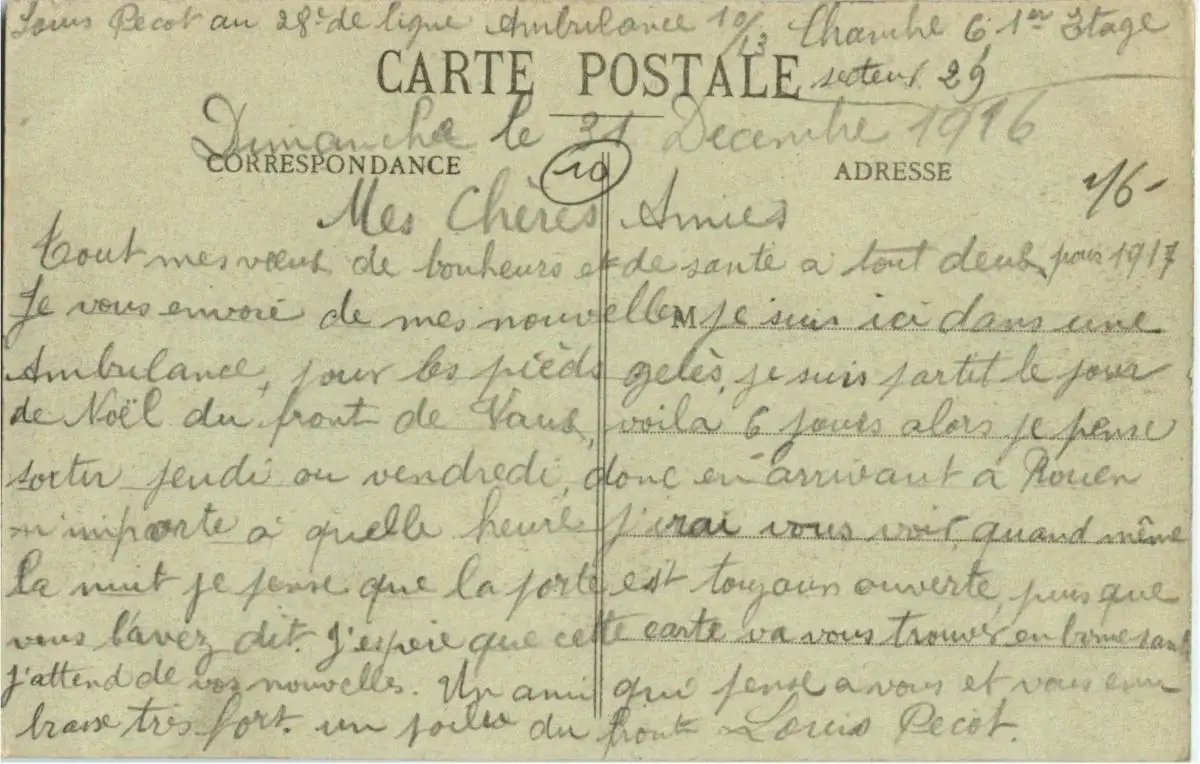 Louis Pecot au 28e de ligne Ambulance 10/13 Chambre 6 1er Etage
CARTE POSTALE secteur 29
Dimanche le 31 Decembre 1916
CORRESPONDANCE 10 ADRESSE
Mes Chères Amies
Tout mes vœux de bonheurs et de santé a tout deux pour 1917
Je vous envoie de mes nouvelles M je suis ici dans une
Ambulance, pour les pièds gelès, je suis partit le jour
de Noël du front de Vaux, voila 6 jours alors je pense
sortir jeudi ou vendredi, donc en arrivant a Rouen
n'importe a quelle heure j'irai vous voir, quand même
la nuit je pense que la porte est toujours ouverte, puis que
vous l'avez dit. J'espère que cette carte va vous trouver en bonne santé
J'attend de vos nouvelles. Un ami qui pense a vous et vous em
brasse très fort. un poilu du front Louis Pecot.